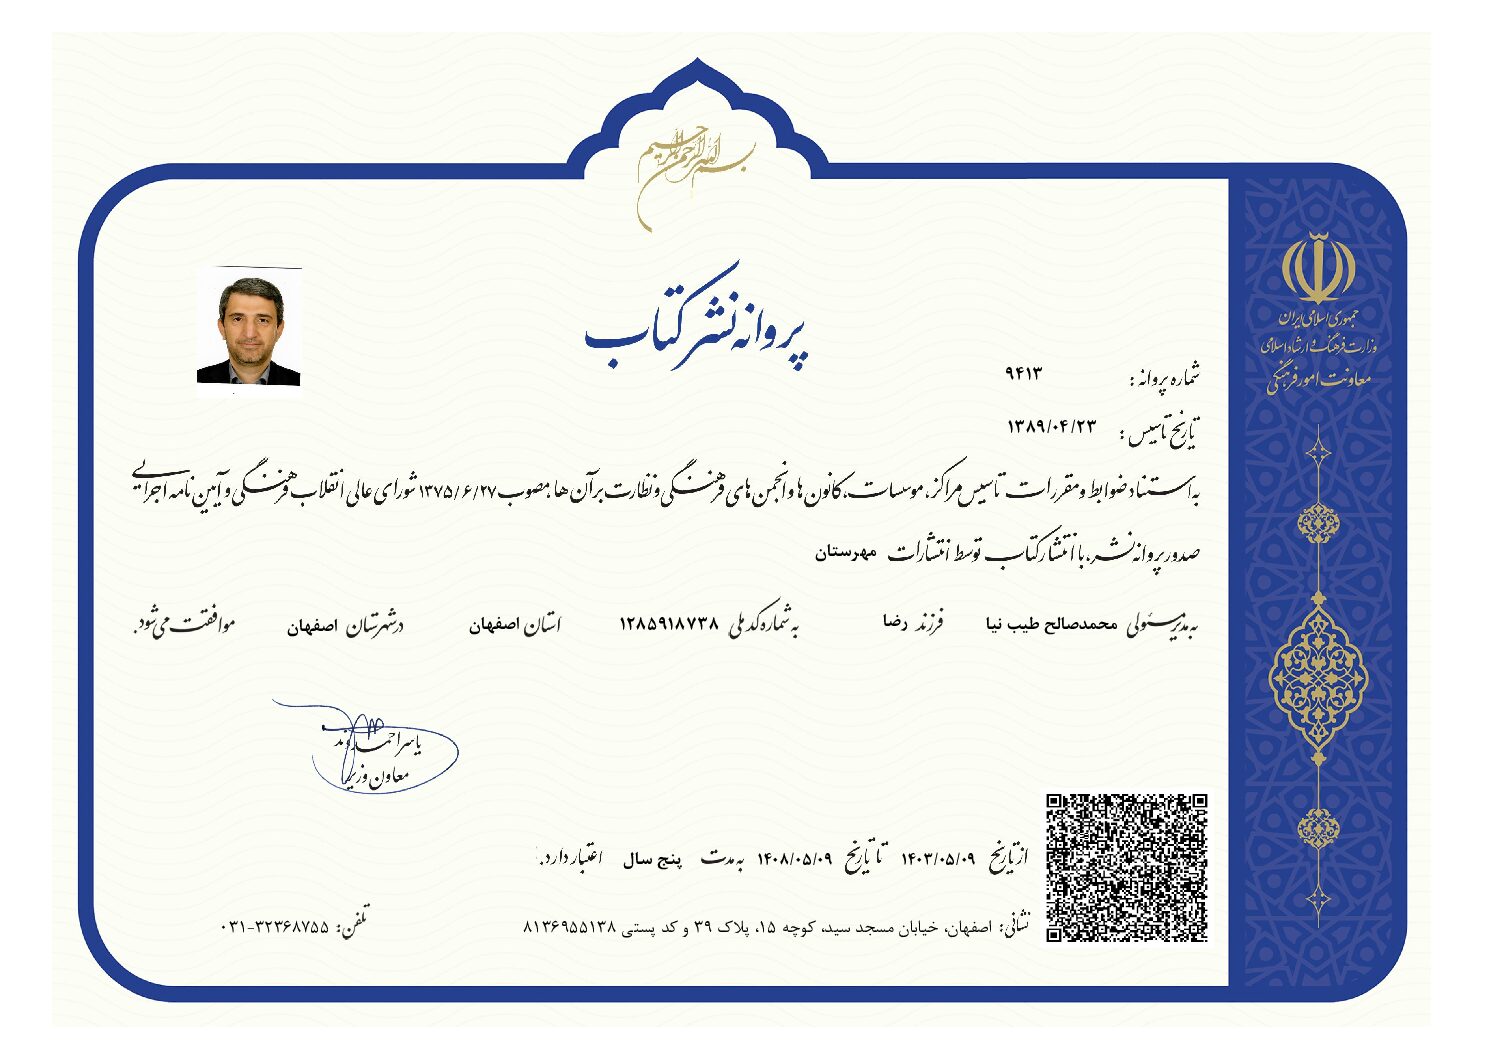 بسم الله الرحمن الرحیم
جمهوری اسلامی ایران
وزارت فرهنگ و ارشاد اسلامی
معاونت امور فرهنگی
پروانه نشر کتاب
شماره پروانه: ۹۴۱۳
تاریخ تاسیس: ۱۳۸۹/۰۴/۲۳
به استناد ضوابط و مقررات تاسیس مراکز، موسسات، کانون ها و انجمن های فرهنگی و نظارت بر آن ها، مصوب ۱۳۷۵/۶/۲۷ شورای عالی انقلاب فرهنگی و آیین نامه اجرایی
صدور پروانه نشر، با انتشار کتاب توسط انتشارات مهرستان
به مدیرمسئولی محمدصالح طیب نیا فرزند رضا به شماره کد ملی ۱۲۸۵۹۱۸۷۳۸ استان اصفهان در شهرستان اصفهان موافقت می شود.
یاسر احمدوند
معاون وزیر
از تاریخ ۱۴۰۳/۰۵/۰۹ تا تاریخ ۱۴۰۸/۰۵/۰۹ به مدت پنج سال اعتبار دارد.
نشانی: اصفهان، خیابان مسجد سید، کوچه ۱۵، پلاک ۳۹ و کد پستی ۸۱۳۶۹۵۵۱۳۸ تلفن: ۰۳۱-۳۲۳۶۸۷۵۵